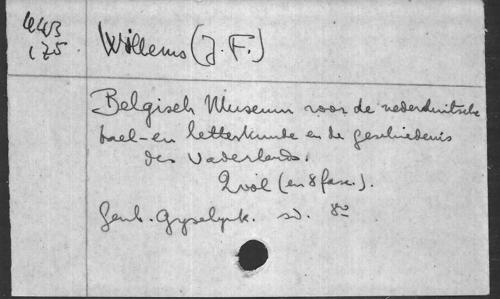 443
175
Willems (J. F.)
Belgisch Museum voor de nederduitsche
tael-en letterkunde en de geschiedenis
des Vaderlands.
2 vol (en 8 fasc.).
Gent. Gyselynck. sd. 8º